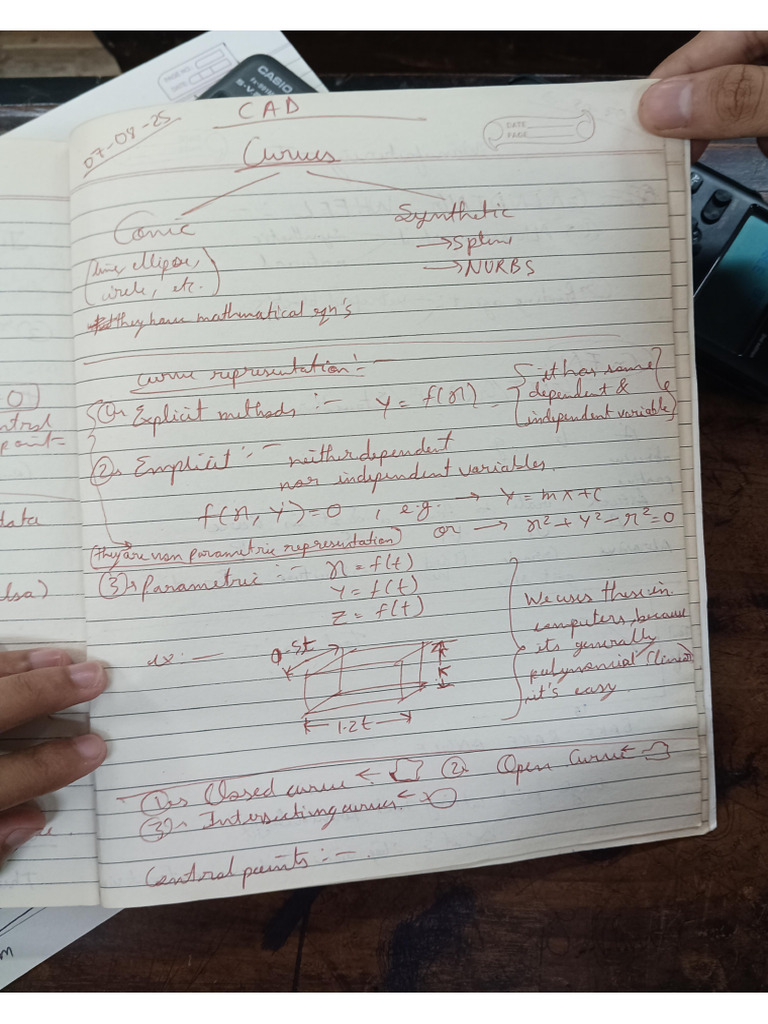 CASIO
CAD
07-08-25
DATE
PAGE
Curves
Conic
Synthetic
(line, ellipse,
circle, etc.)
→ Spline
→ NURBS
they have mathematical eqn's
Curve representation :-
① Explicit methods :- y = f(x) - {it has some dependent & independent variable}
② Emplicit :- neither dependent
nor independent variables.
f(x, y) = 0 , e.g. → y = mx + c
or → x² + y² - r² = 0
(They are non parametric representation)
③ Parametric :- x = f(t)
y = f(t)
z = f(t)
We uses these in
computers, because
its generally
polynomial (linear)
it's easy
ex :-
0.5t
t
1.2t
① Closed curve ← ② Open Curve ←
③ Intersecting curves ←
Control points :-
0
ntrol
point-
data